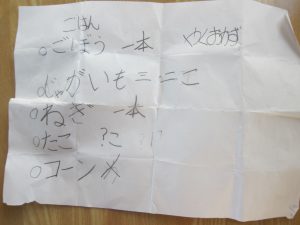 ごはん
○ごぼう 一本
じゃがいも 三・二こ
○ねぎ 一本
○たこ ?こ
○コーン